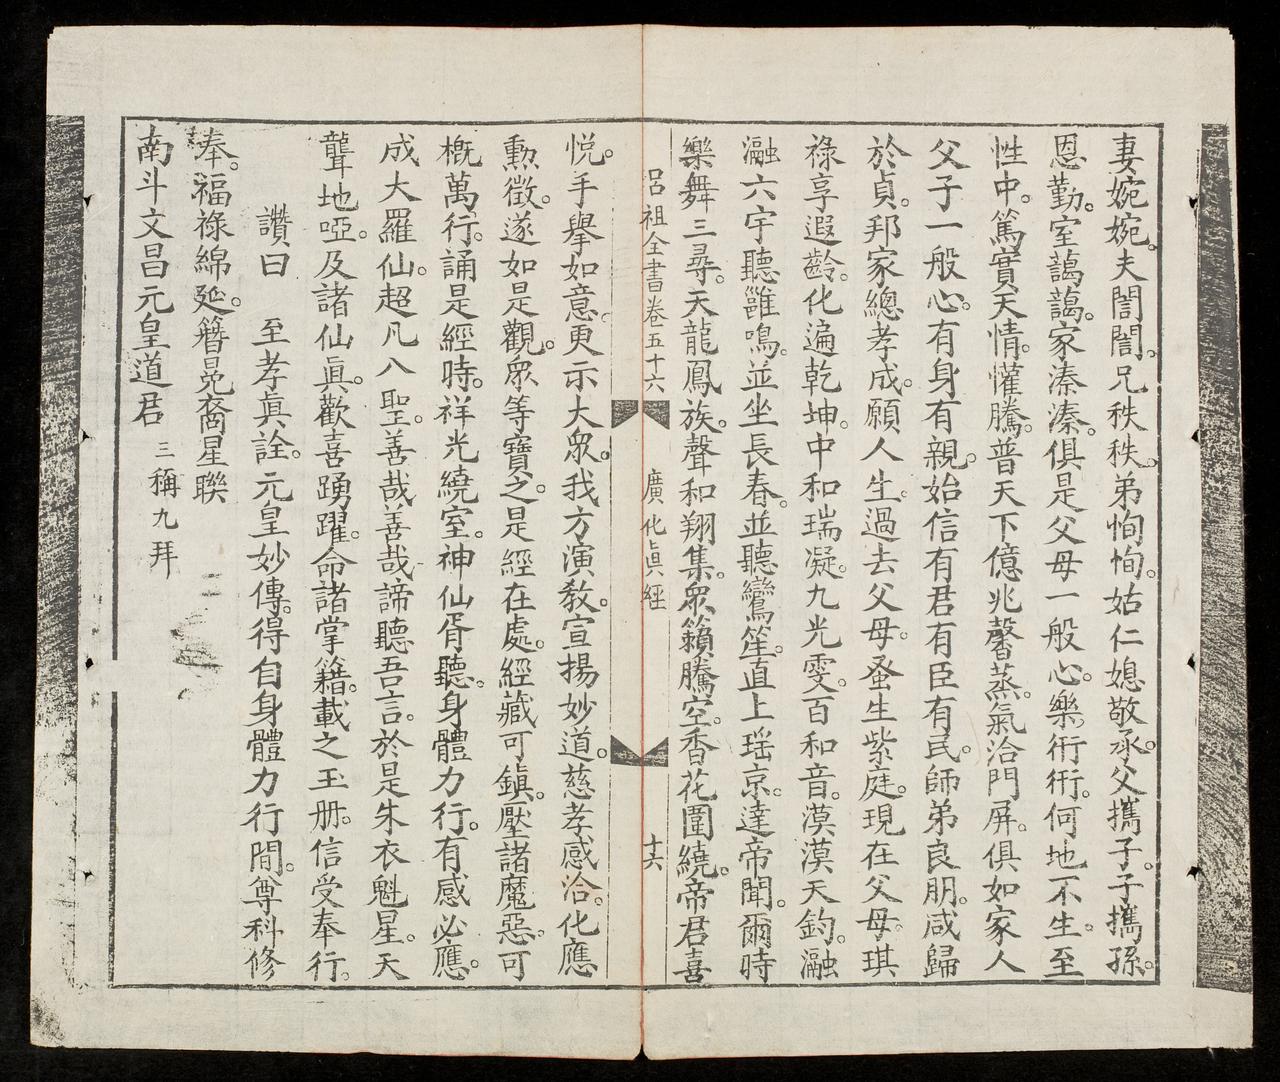 妻婉婉。夫誾誾。兄秩秩。弟恂恂。姑仁媳敬承。父攜子。子攜孫。
恩勤。室藹藹。家溱溱。俱是父母一般心。樂衎衎。何地不生。至
性中。篤實天情。懽騰。普天下億兆馨蒸。氣洽門屏。俱如家人
父子一般心。有身有親。始信有君有臣有民。師弟良朋。咸歸
於貞。邦家總孝成。願人生。過去父母。蚤生紫庭。現在父母。琪
祿享遐齡。化遍乾坤。中和瑞凝。九光雯。百和音。漠漠天鈞。瀜
瀜六宇聽雝鳴。並坐長春。並聽鸞笙。直上瑤京。達帝聞。爾時
樂舞三尋。天龍鳳族。聲和翔集。眾籟騰空。香花圍繞。帝君喜
呂祖全書卷五十六 廣化眞經 十六
悅。手舉如意。更示大眾。我方演教。宣揚妙道。慈孝感洽。化應
勳徵。遂如是觀。眾等寶之。是經在處。經藏可鎮。壓諸魔惡。可
概萬行。誦是經時。祥光繞室。神仙胥聽。身體力行。有感必應。
成大羅仙。超凡入聖。善哉善哉。諦聽吾言。於是朱衣魁星。天
聾地啞。及諸仙眞。歡喜踴躍。命諸掌籍。載之玉册。信受奉行。
讚曰 至孝眞詮。元皇妙傳。得自身體力行間。尊科修
奉。福祿綿延。簪冕裔星聯
南斗文昌元皇道君 三稱九拜